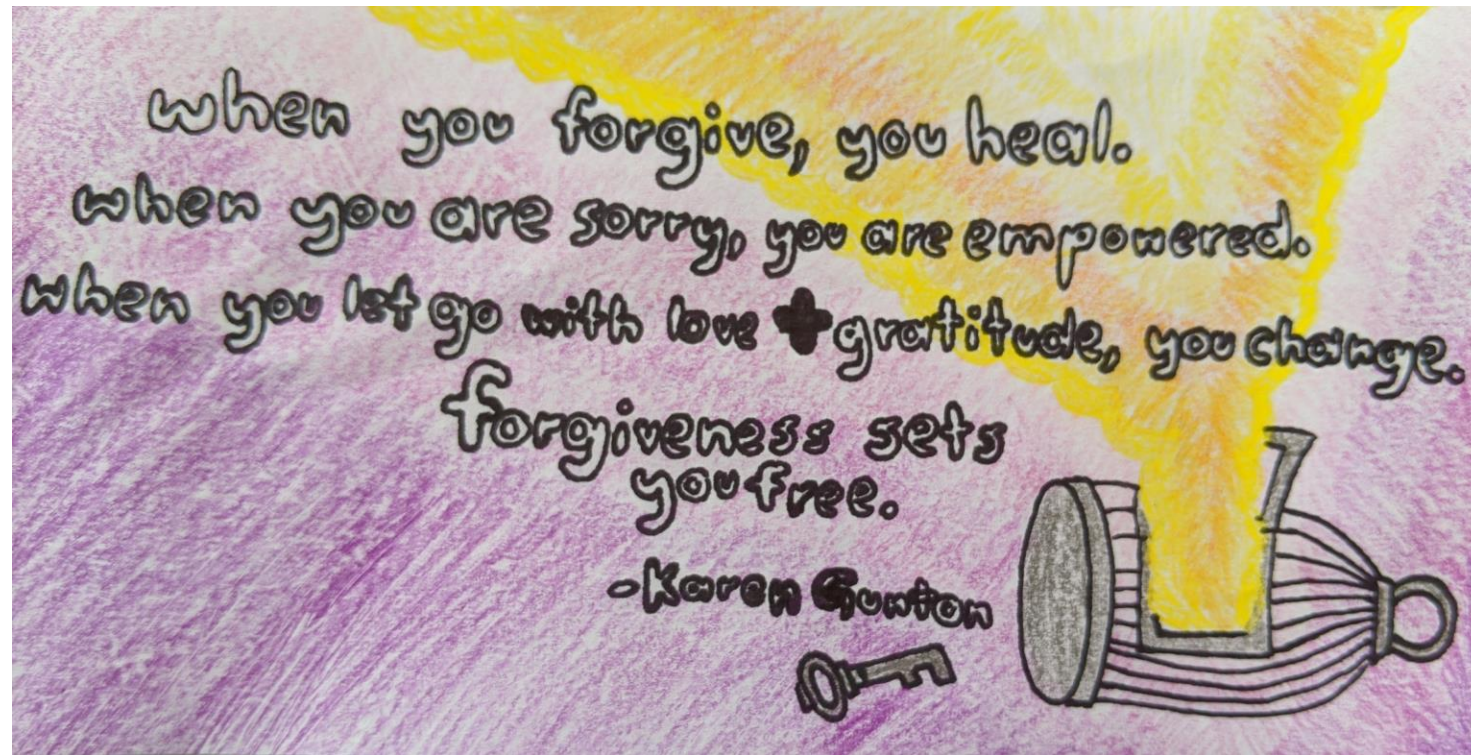 when you forgive, you heal.
when you are sorry, you are empowered.
when you let go with love + gratitude, you change.
forgiveness sets
you free.
-Karen Gunton